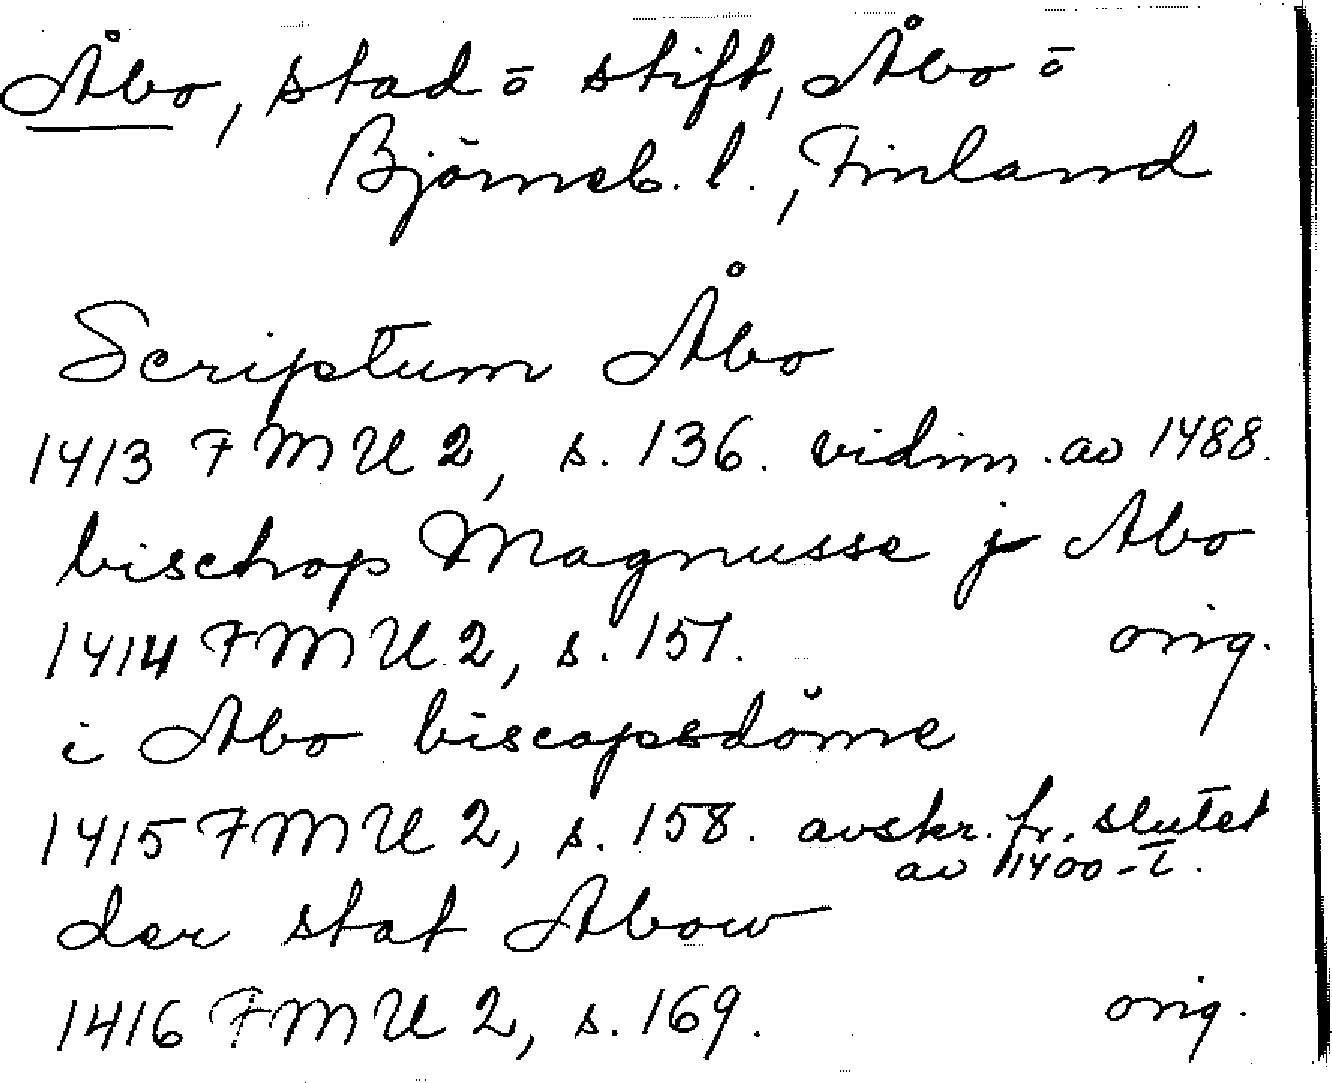 Åbo, stad ō stift, Åbo ō
Björneb. l., Finland
Scriptum Åbo
1413 FMU 2, s. 136. vidim. av 1488.
bischop Magnusse j Abo
1414 FMU 2, s. 151. orig.
i Abo biscopsdöme
1415 FMU 2, s. 158. avskr. fr. slutet
av 1400-t.
der stat Abow
1416 FMU 2, s. 169. orig.